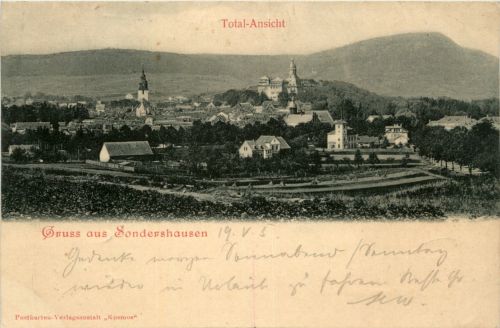 Total-Ansicht
Gruss aus Sondershausen 19. V. 5
Gedenke morgen Sonnabend / Sonntag
wieder in Urlaub zu fahren Beste Gr.
Postkarten-Verlagsanstalt „Kosmos"